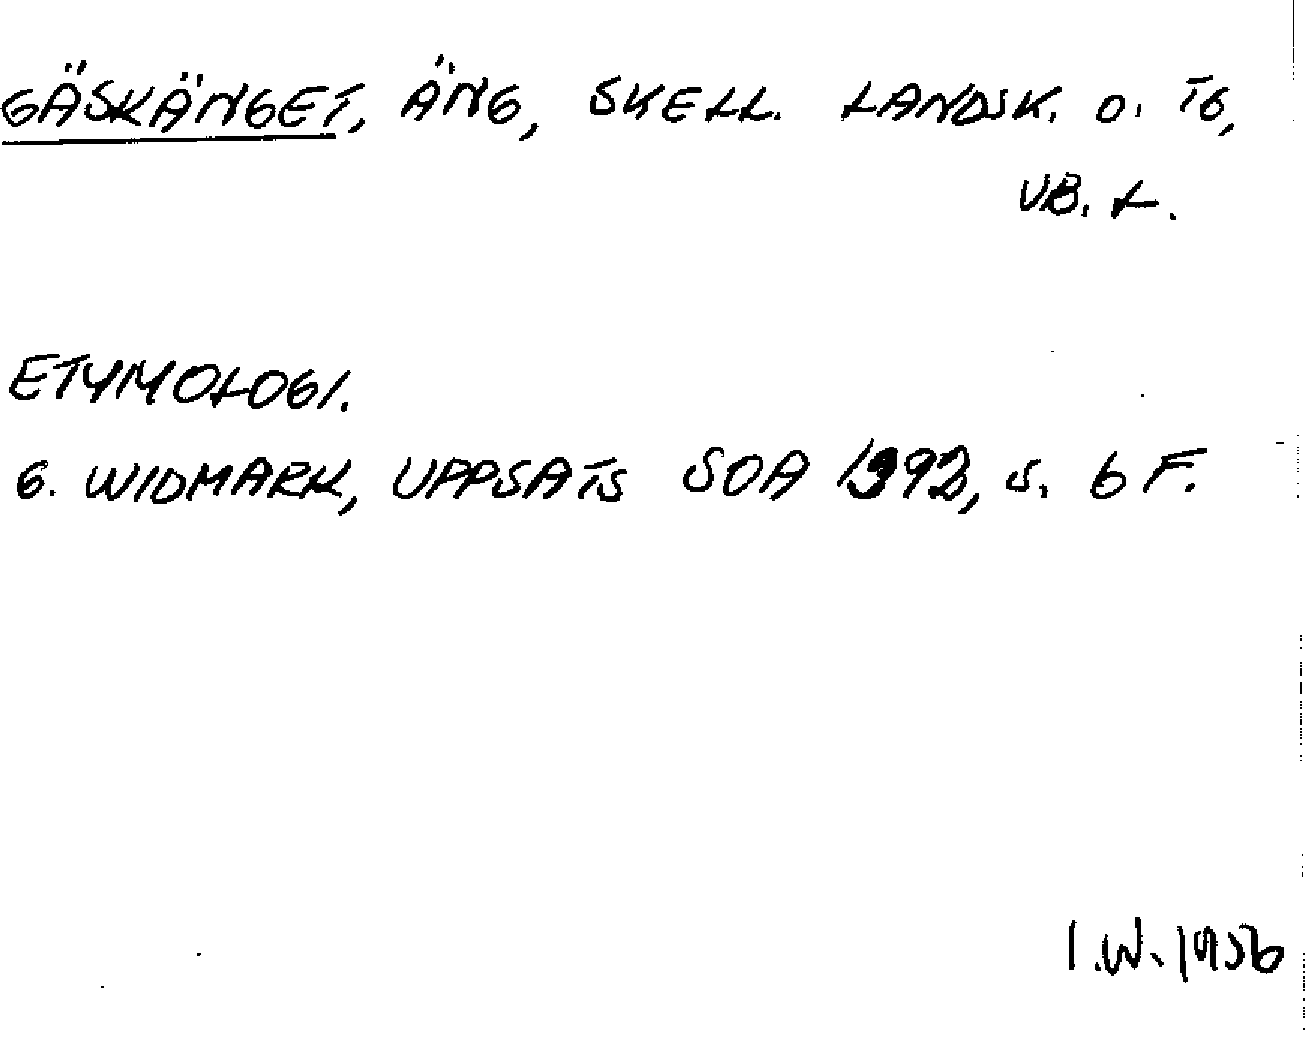 GÄSKÄNGET, ÄNG, SKELL. LANDSK. O. TG,
VB. L.
ETYMOLOGI.
G. WIDMARK, UPPSATS SOA 1992, S. 6 F.
I.W. 1956